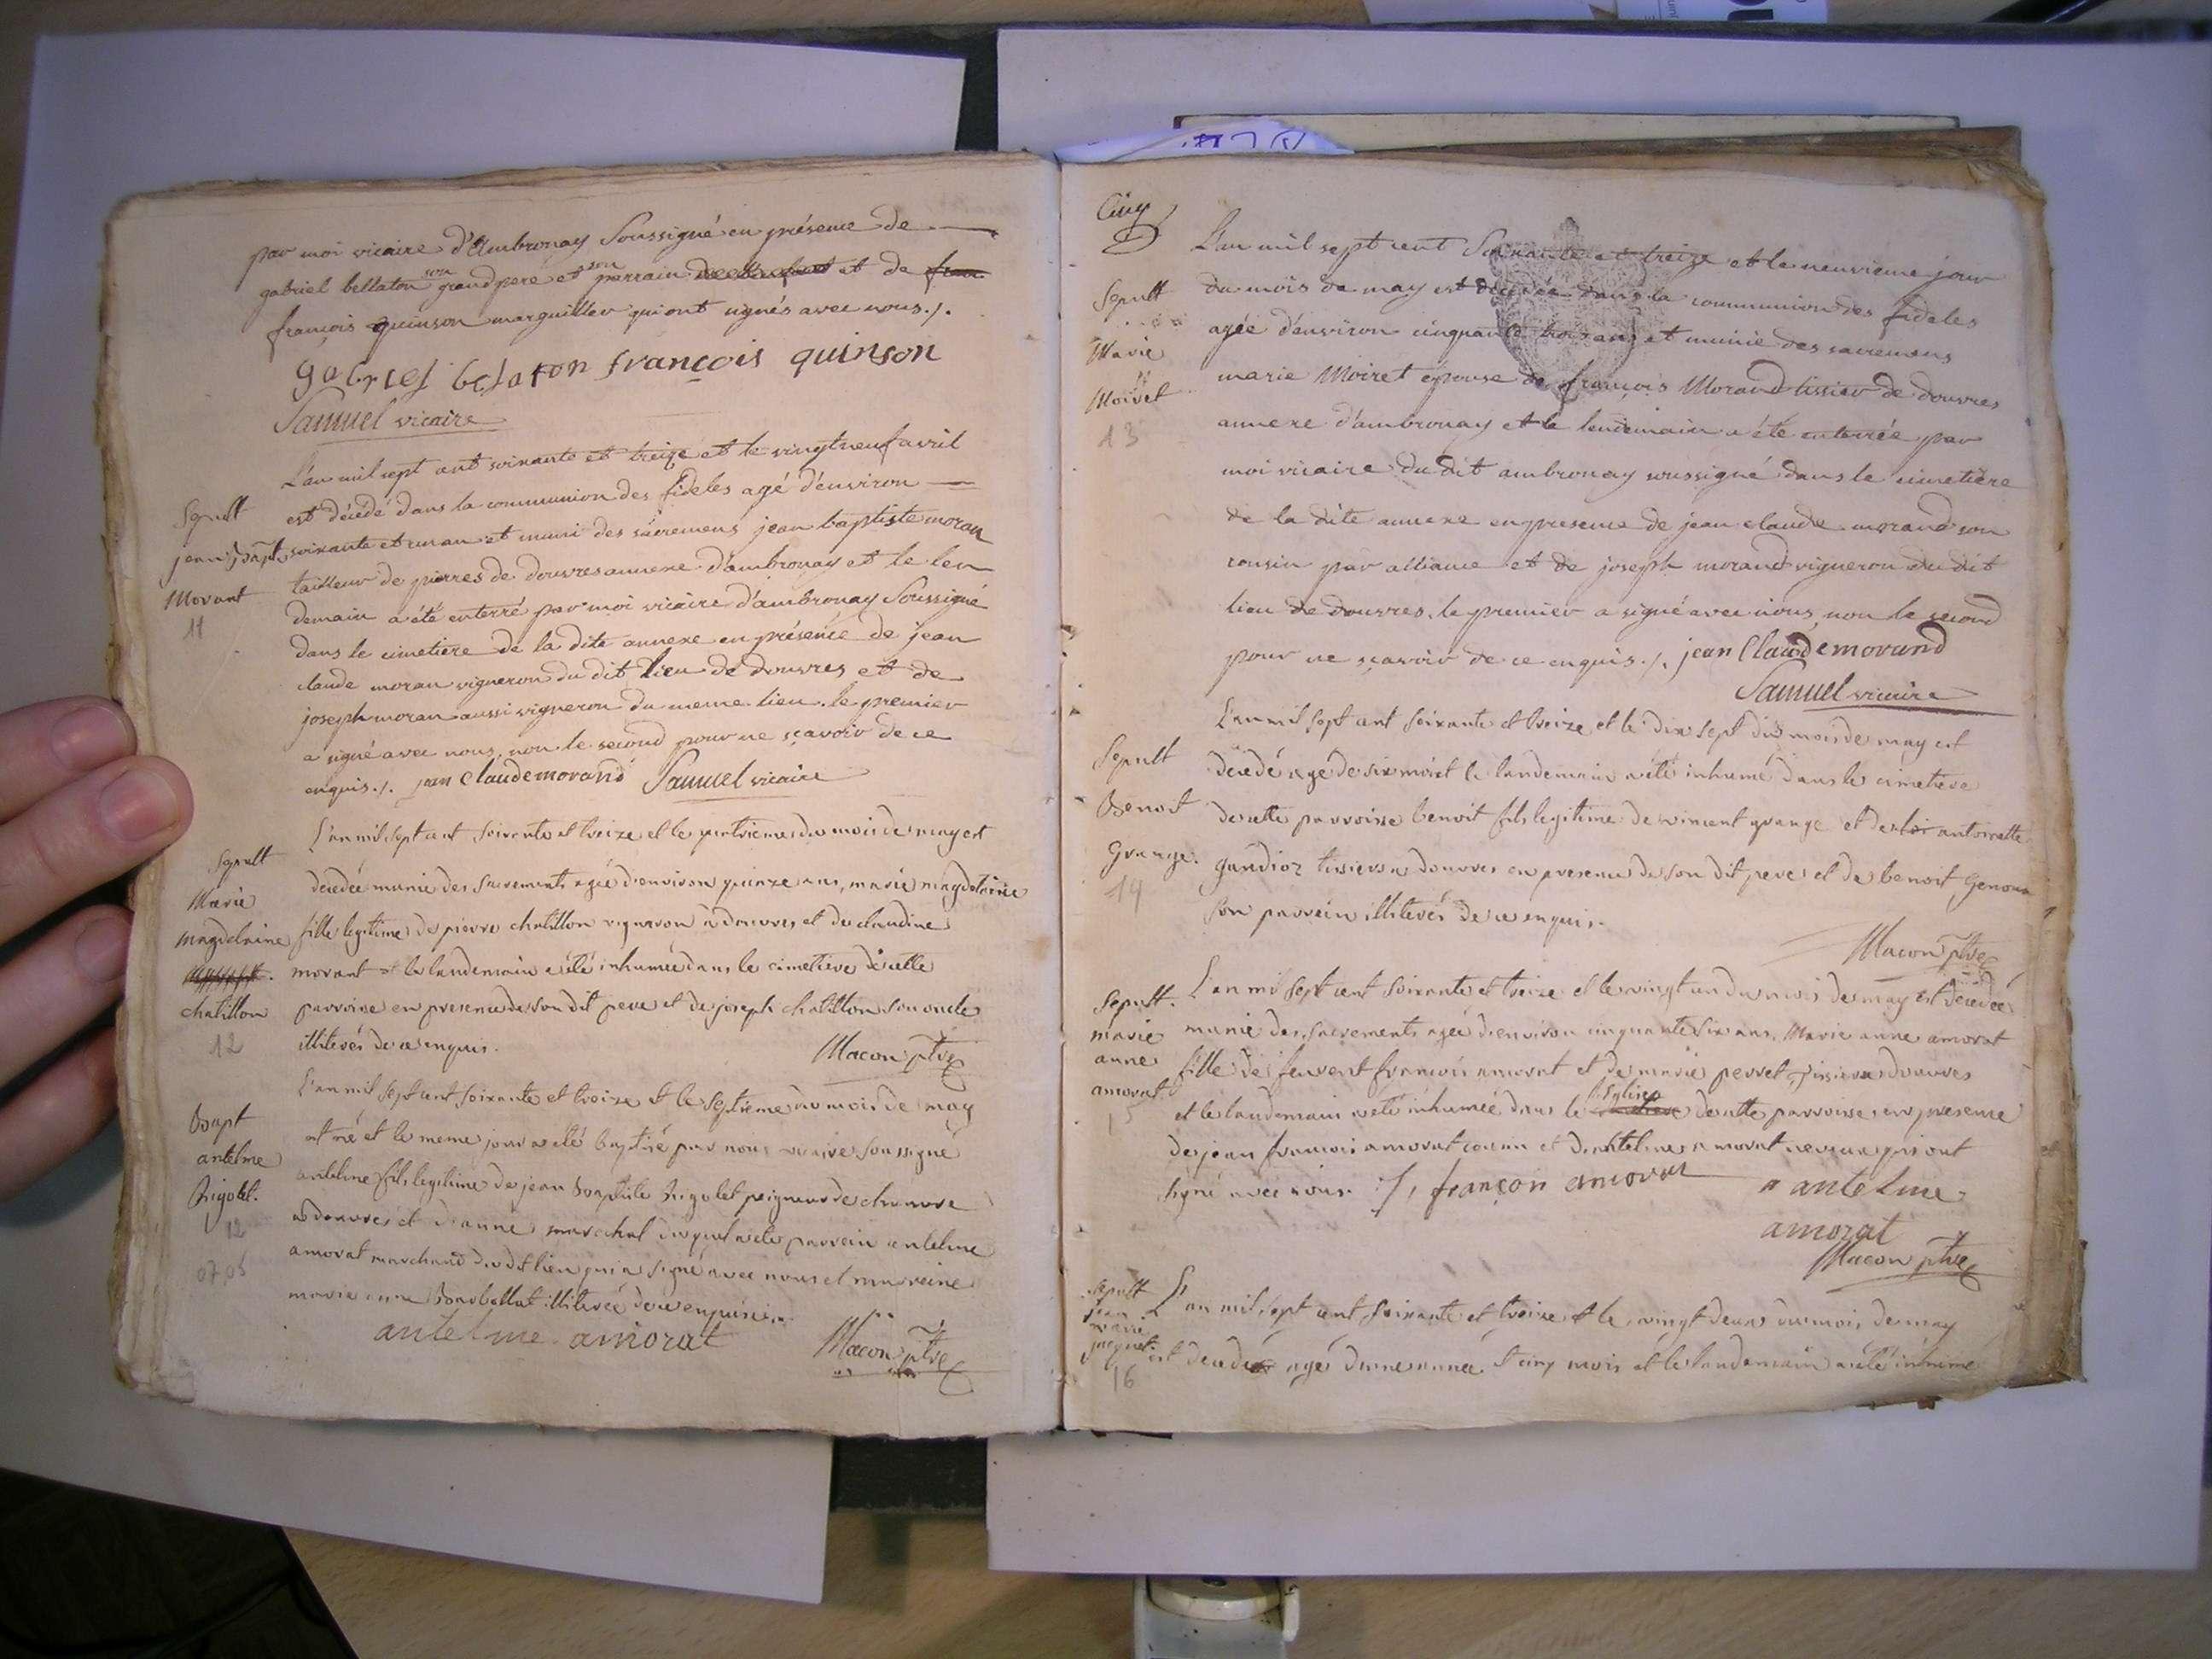 par moi vicaire d'Ambronay Soussigné en présence de
gabriel bellaton son grand pere et son parrain et de
françois quinson marguillier qui ont signés avec nous ./.
gabriel belaton françois quinson
Samuel vicaire
Sepult
jean bapt.
Morant
11
L'an mil sept cent soixante et treize et le vingt neuf avril
est décédé dans la communion des fideles agé d'environ
soixante et un an et muni des sacremens jean baptiste moran
tailleur de pierres de douvres annexe d'ambronay et le len
demain a été enterré par moi vicaire d'ambronay Soussigné
dans le cimetiere de la dite annexe en présence de jean
claude moran vigneron du dit lieu de douvres et de
joseph moran aussi vigneron du meme lieu. le premier
a signé avec nous, non le second pour ne sçavoir de ce
enquis ./. jean claude morand Samuel vicaire
Sepult
Marie
magdelaine
chatillon
12
L'an mil sept cent soixante et treize et le quatrieme du mois de may est
decedée munie des sacrements agée d'environ quinze ans, marie magdelaine
fille legitime de pierre chatillon vigneron a douvres et de claudine
morant et le landemain a été inhumée dans le cimetiere de cette
parroisse en presence de son dit pere et de joseph chatillon son oncle
illiterés de ce enquis.
Macon ptre
Bapt
antelme
Rigolet.
12
07.05
L'an mil sept cent soixante et treize et le septieme du mois de may
est né et le meme jour a été baptisé par nous vicaire soussigné
antelme fils legitime de jean baptiste Rigolet peigneur de chanvre
a douvres et d'anne marechal du quel a été parrein antelme
amorat marchand du dit lieu qui a signé avec nous et marreine
marie anne illiterée de ce enquise.
antelme amorat
Macon ptre
Cinq
Sepult
Marie
Moiret
13
L'an mil sept cent Soixante et treize et le neuvieme jour
du mois de may est décédée dans la communion des fideles
agée d'environ cinquante trois ans et munie des sacremens
marie Moiret épouse de françois Morand tissier de douvres
annexe d'ambronay et le lendemain a été enterrée par
moi vicaire du dit ambronay soussigné dans le cimetiere
de la dite annexe en presence de jean claude morand son
cousin par alliance et de joseph morand vigneron du dit
lieu de douvres. le premier a signé avec nous, non le second
pour ne sçavoir de ce enquis ./. jean Claude morand
Samuel vicaire
Sepult
Benoit
Grange.
14
L'an mil sept cent soixante et treize et le dix sept du mois de may est
decedé agé de six mois et le landemain a été inhumé dans le cimetiere
de cette parroisse benoit fils legitime de vincent grange et de antoinette
gandioz tissier a douvres en presence de son dit pere et de benoit
son parrein illiterés de ce enquis.
Macon ptre
Sepult.
marie
anne
amorat
15
L'an mil sept cent soixante et treize et le vingt un du mois de may est decedée
munie des sacrements agée d'environ cinquante six ans, Marie anne amorat
fille de françois amorat et de marie perret a douvres
et le landemain a été inhumée dans l'Eglise de cette parroisse en presence
de jean françois amorat cousin et d'antelme amorat neveu qui ont
signé avec nous. J, françoi amorat antelme
amorat
Macon ptre
Sepult
jean
marie
16
L'an mil sept cent soixante et treize et le vingt deux du mois de may
est decedé agé d'une année et cinq mois et le landemain a été inhumé